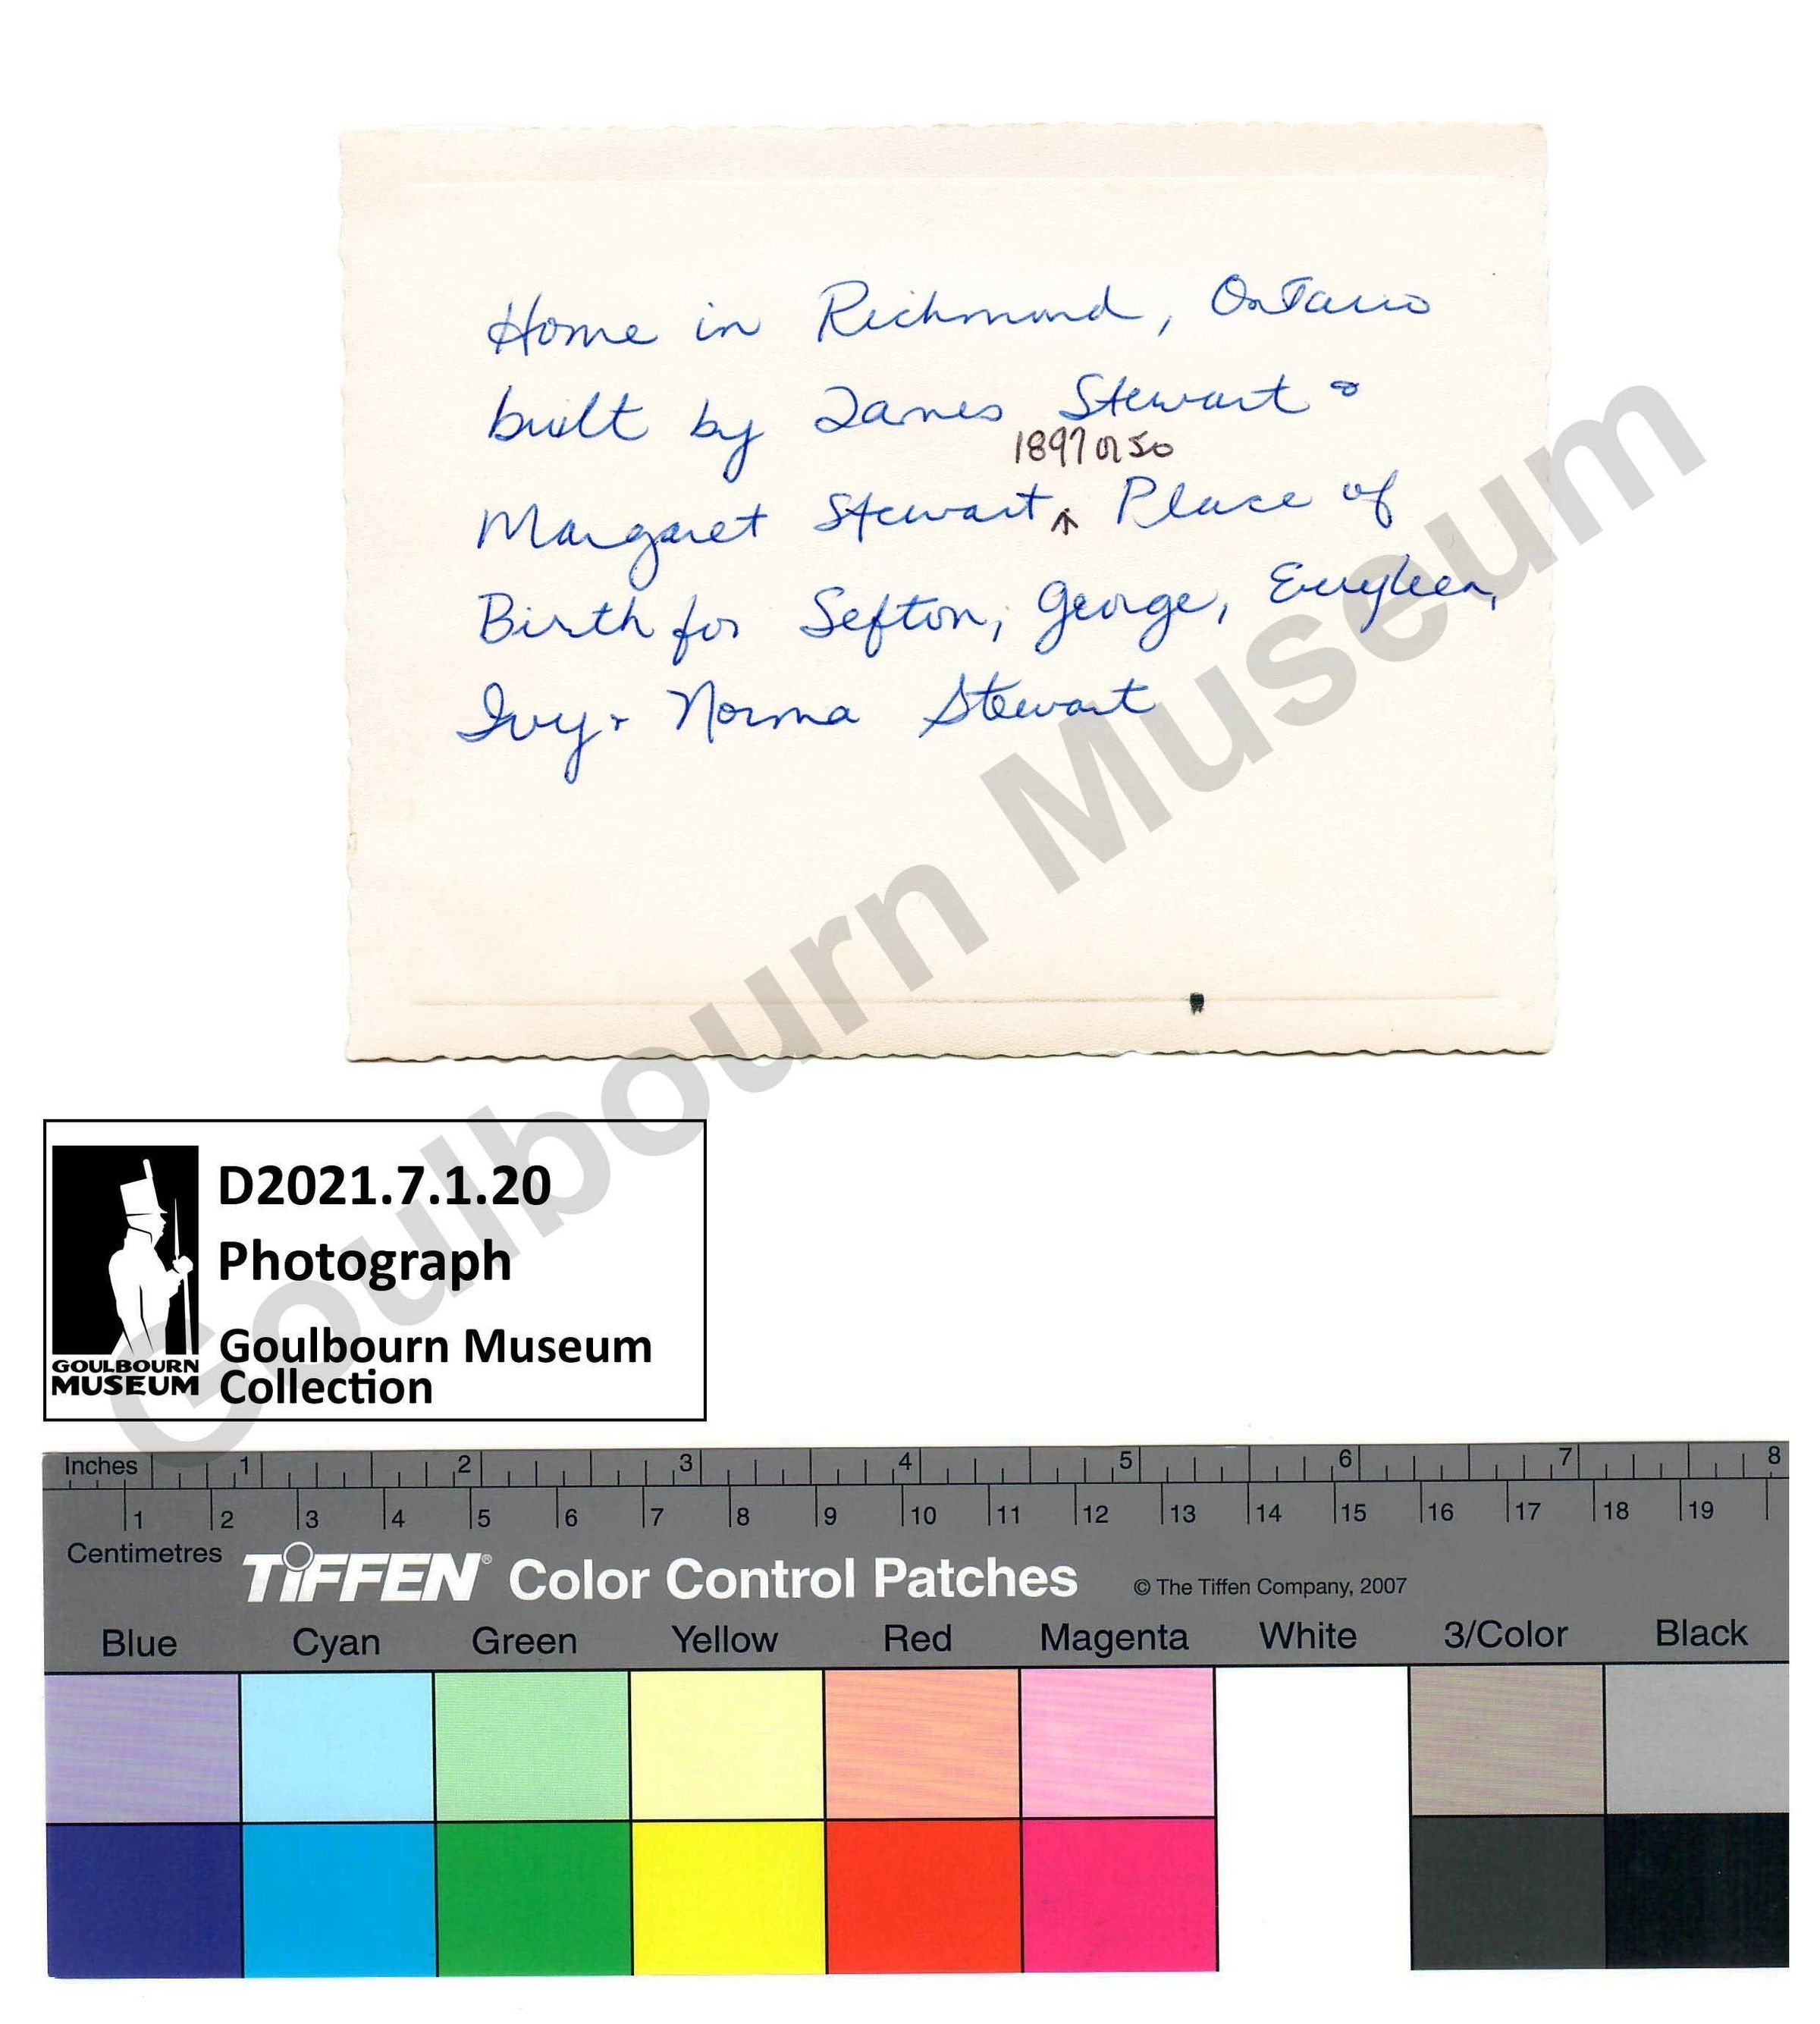 Home in Richmond, Ontario
built by James Stewart &
1897 or so
Margaret Stewart ↑ Place of
Birth for Sefton, George,
Ivy + Norma Stewart
D2021.7.1.20
Photograph
Goulbourn Museum
Collection
GOULBOURN
MUSEUM
Goulbourn Museum
Inches 1 2 3 4 5 6 7 8
1 2 3 4 5 6 7 8 9 10 11 12 13 14 15 16 17 18 19
Centimetres
TIFFEN® Color Control Patches © The Tiffen Company, 2007
Blue Cyan Green Yellow Red Magenta White 3/Color Black